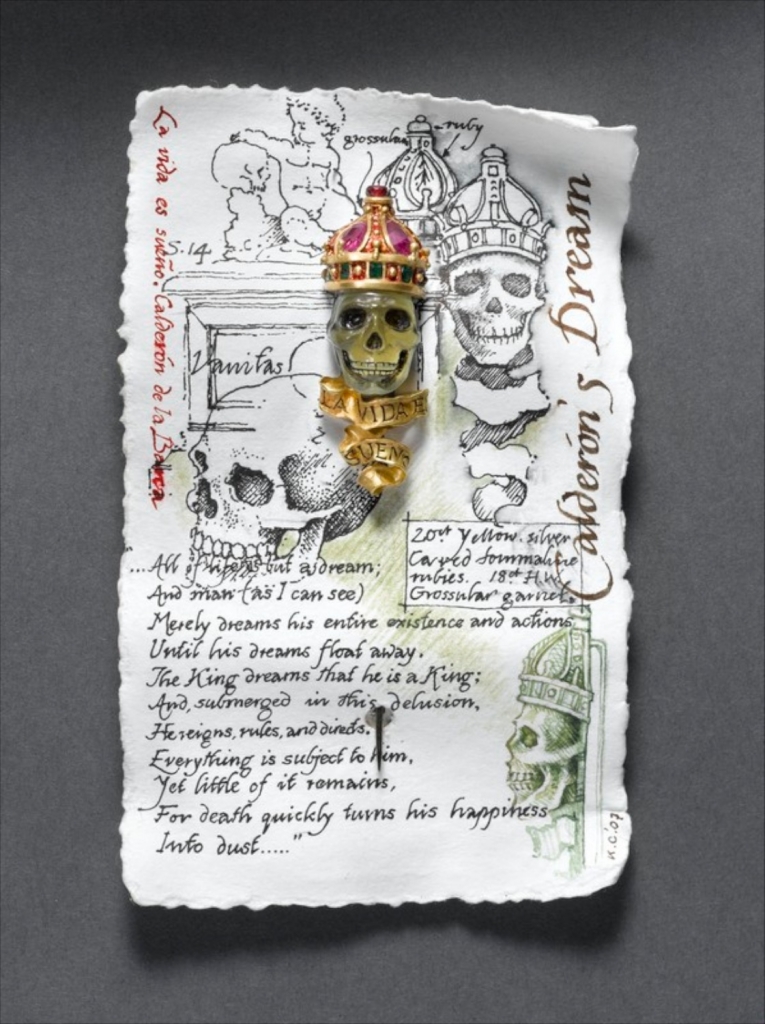 La vida es sueño. Calderón de la Barca
grossular
ruby
S.14
Vanitas
LA VIDA E
SUEÑ
Calderón's Dream
20ct yellow. silver
Carved tourmaline
rubies. 18ct H.W.
Grossular garnet.
"...All of life is but a dream;
And man (as I can see)
Merely dreams his entire existence and actions
Until his dreams float away.
The King dreams that he is a King;
And, submerged in this delusion,
He reigns, rules, and directs.
Everything is subject to him,
Yet little of it remains,
For death quickly turns his happiness
Into dust....."
K.C.'07